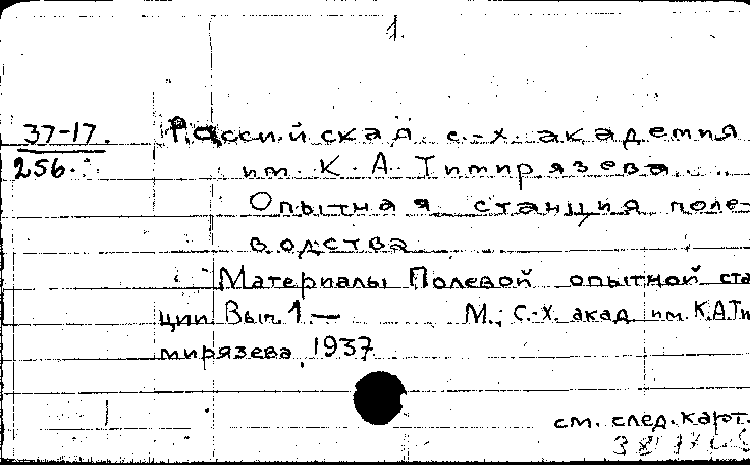 1.
37-17. Российская с.-х. академия
256. им. К. А. Тимирязева
Опытная станция поле-
водства
Материалы Полевой опытной ста
ции Вып. 1. — М.; С.-х. акад. им. К.А.Ти
мирязева, 1937
см. след. карт.